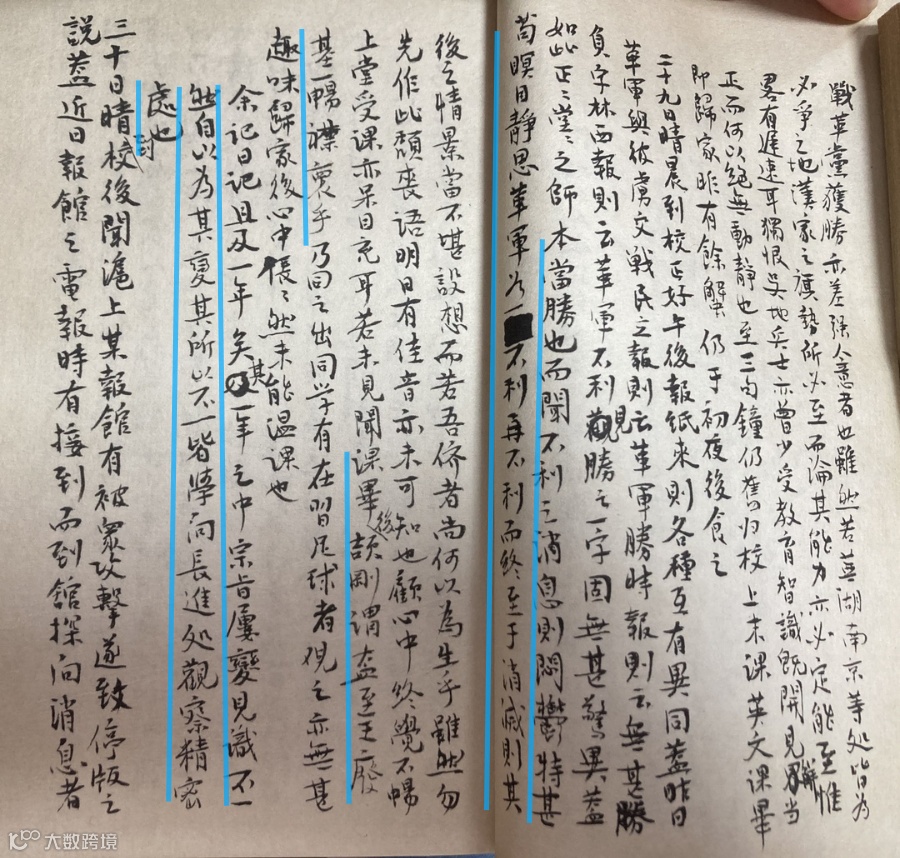 戰革黨獲勝亦差强人意者也雖然若蕪湖南京等处皆为
必爭之地漢家之旗勢所必至而論其能力亦必定能至惟
畧有遲速耳獨恨吳地兵士亦曾少受教育智識既開見解當
正而何以絕無動靜也至三句鐘仍舊归校上末课英文课畢
即歸家昨有餘蟹仍于初夜後食之
二十九日晴晨到校正好午後報紙來則各種互有異同蓋昨日
革軍與彼虜交戰民立報則云革軍勝時報則云無甚勝
負字林西報則云革軍不利觀見勝之一字固無甚驚異蓋
如此正正堂堂之師本當勝也而聞不利之消息則悶鬱特甚
苟瞑目靜思革軍为一不利再不利而終至于消滅則其
後之情景當不堪設想而若吾侪者尚何以為生乎雖然勿
先作此頹喪语明日有佳音亦未可知也顧心中終覺不暢
上堂受课亦呆目充耳若未見聞课畢後頡剛謂盍至王廢
基一暢襟裏乎乃同之出同学有在習足球者观之亦無甚
趣味歸家後心中悵悵然未能温课也
余记日记且及一年矣其一年之中宗旨屢變見識不一
然自以為其变其所以不一皆學问長進处觀察精密
處也
三十日晴校後聞滬上某報館有被衆攻擊遂致封停版之
説蓋近日報館之電報時有接到而到舘探问消息者
大数跨境